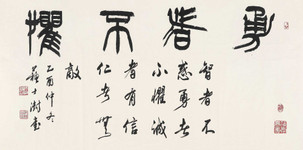 勇者不懼
智者不
惑勇者
不懼誠
者有信
仁者無
敵
乙酉仲冬
蘇士澍書